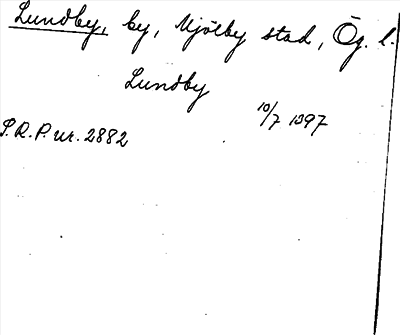 Lundby, by, Mjölby stad, Ög. l.
Lundby
10/7 1397
S.R.P. nr. 2882